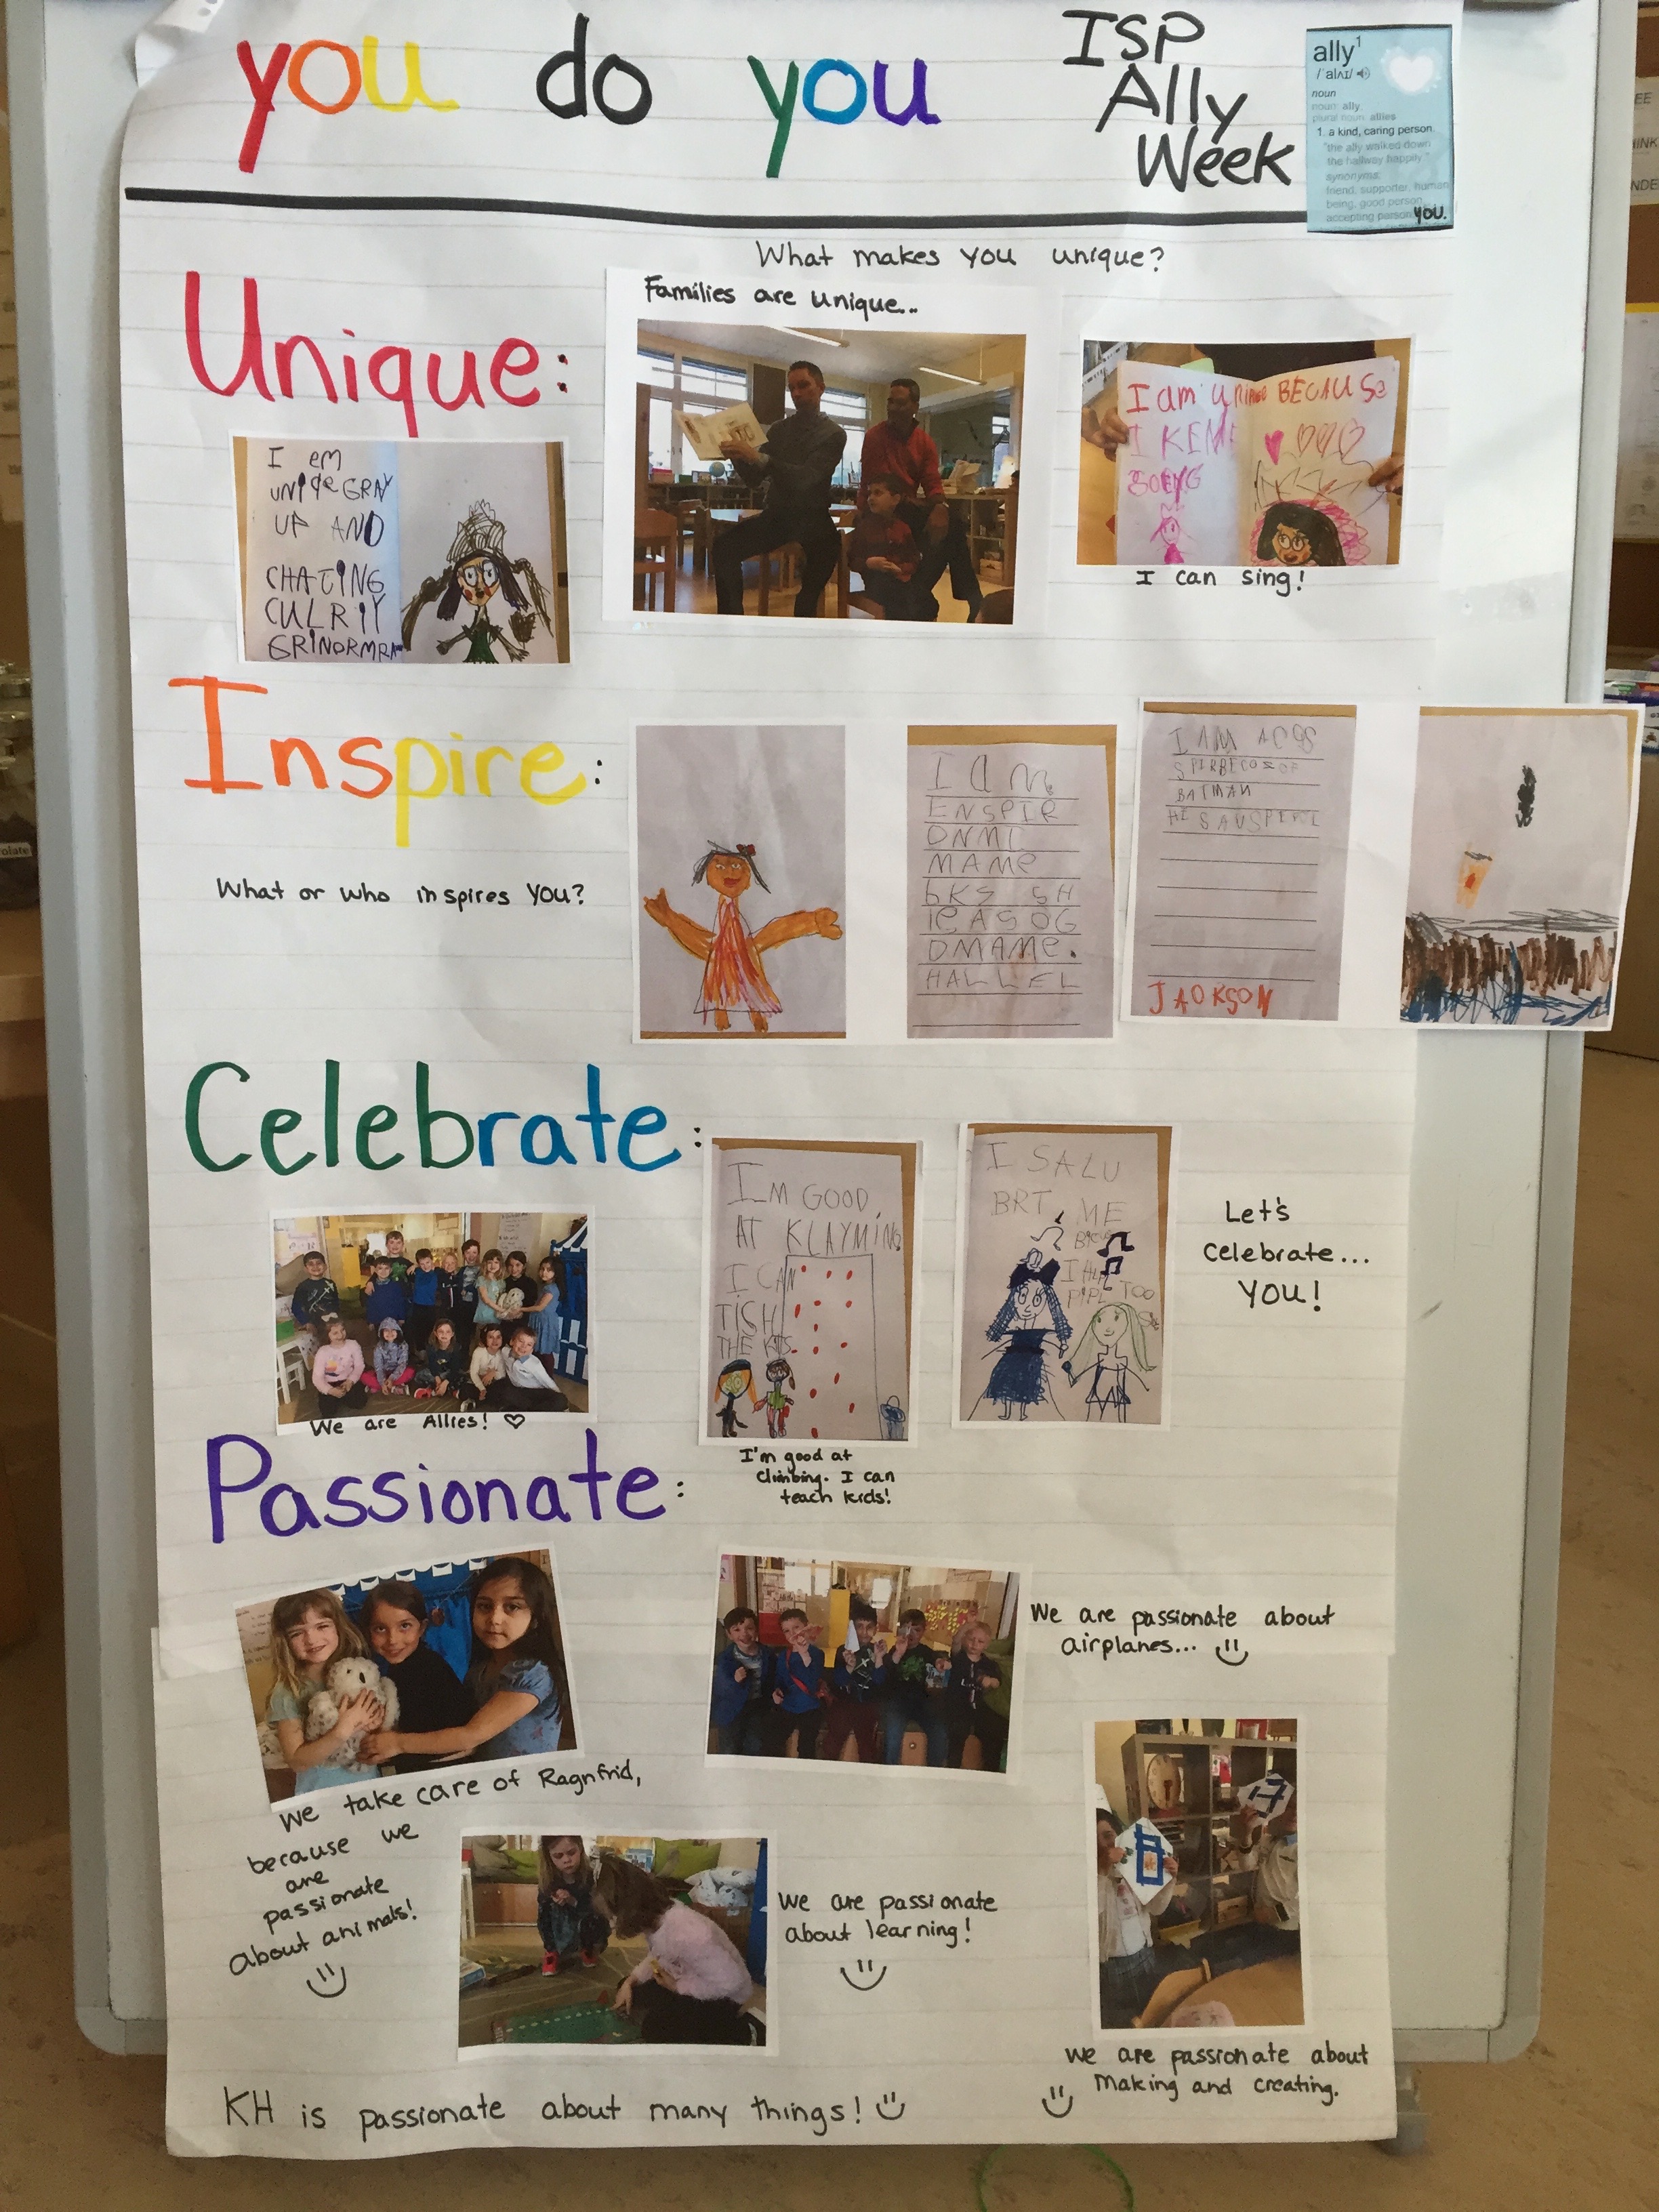 you do you
ISP
Ally
Week
ally¹
noun
noun: ally
plural noun: allies
1. a kind, caring person.
"the ally walked down
the hallway happily."
synonyms:
friend, supporter, human
being, good person,
accepting person, YOU.
What makes you unique?
Unique:
Families are unique...
I em
UNIqe GRAY
UP AND
CHATING
CULRIY
I am BECAUSE
I KEN
I can sing!
Inspire:
What or who inspires you?
I am
ENSPIR
MAME
BKS SH
IE AS OG
DMAME.
HALLEL
I AM
BATMAN
JACKSON
Celebrate:
I M GOOD
AT KLAYMING
I CAN
TISH
THE
I SALU
BRT ME
TOO
Let's
celebrate...
YOU!
We are Allies! ♡
I'm good at
climbing. I can
teach kids!
Passionate:
We are passionate about
airplanes...
We take care of Ragnfrid,
because we
are
passionate
about animals!
We are passionate
about learning!
We are passionate about
making and creating.
KH is passionate about many things!